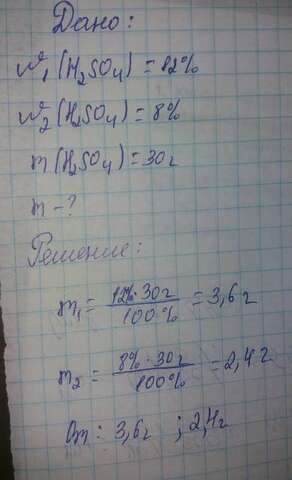 Дано:
w₁(H₂SO₄)=12%
w₂(H₂SO₄)=8%
m(H₂SO₄)=30г
m-?
Решение:
m₁= 12%·30г / 100% =3,6г
m₂= 8%·30г / 100% =2,4г
От: 3,6г ; 2,4г